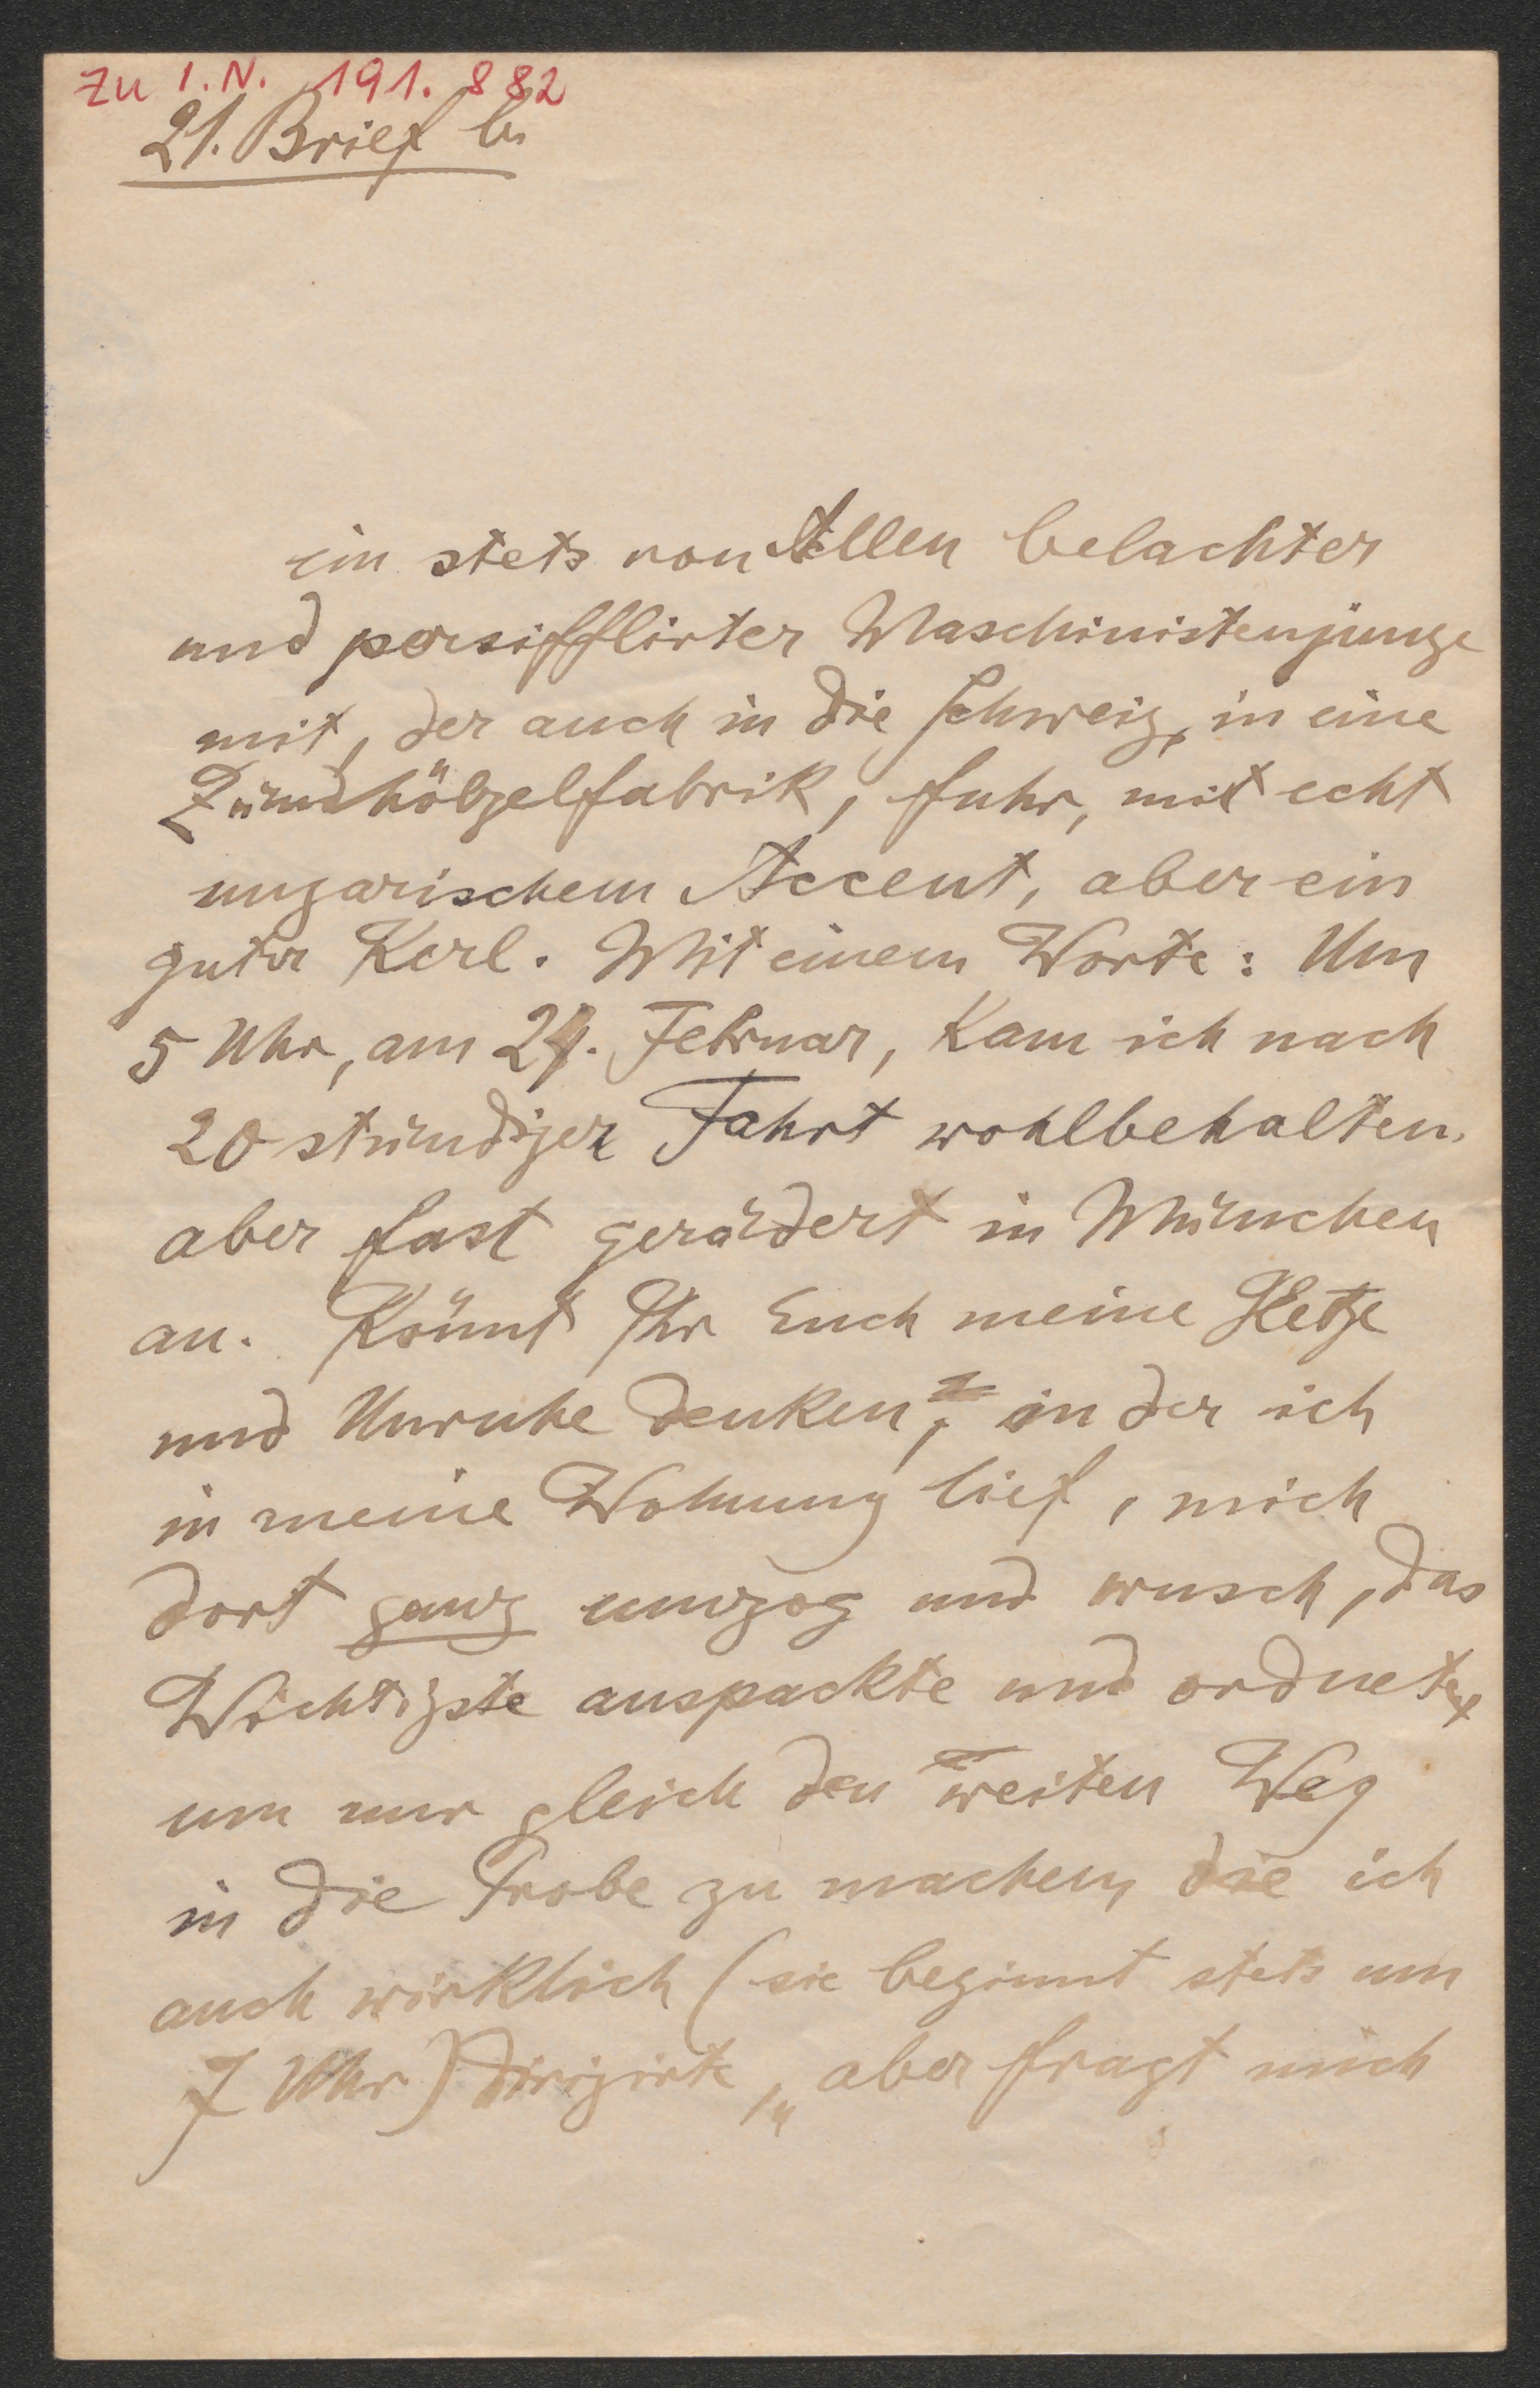 Zu I.N. 191.882
21. Brief b
ein stets von Allen belachter
und persifflirter Maschinistenjunge
mit, der auch in die Schweiz, in eine
Zündhölzelfabrik, fuhr, mit echt
ungarischem Accent, aber ein
guter Kerl. Mit einem Worte: Um
5 Uhr, am 24. Februar, kam ich nach
20 stündiger Fahrt wohlbehalten,
aber fast gerädert in München
an. Könnt Ihr Euch meine Hetze
und Unruhe denken, in der ich
in meine Wohnung lief, mich
dort ganz umzog und wusch, das
Wichtigste auspackte und ordnete,
um nur gleich den weiten Weg
in die Probe zu machen, die ich
auch wirklich (sie beginnt stets um
7 Uhr) dirigirte, „aber fragt mich